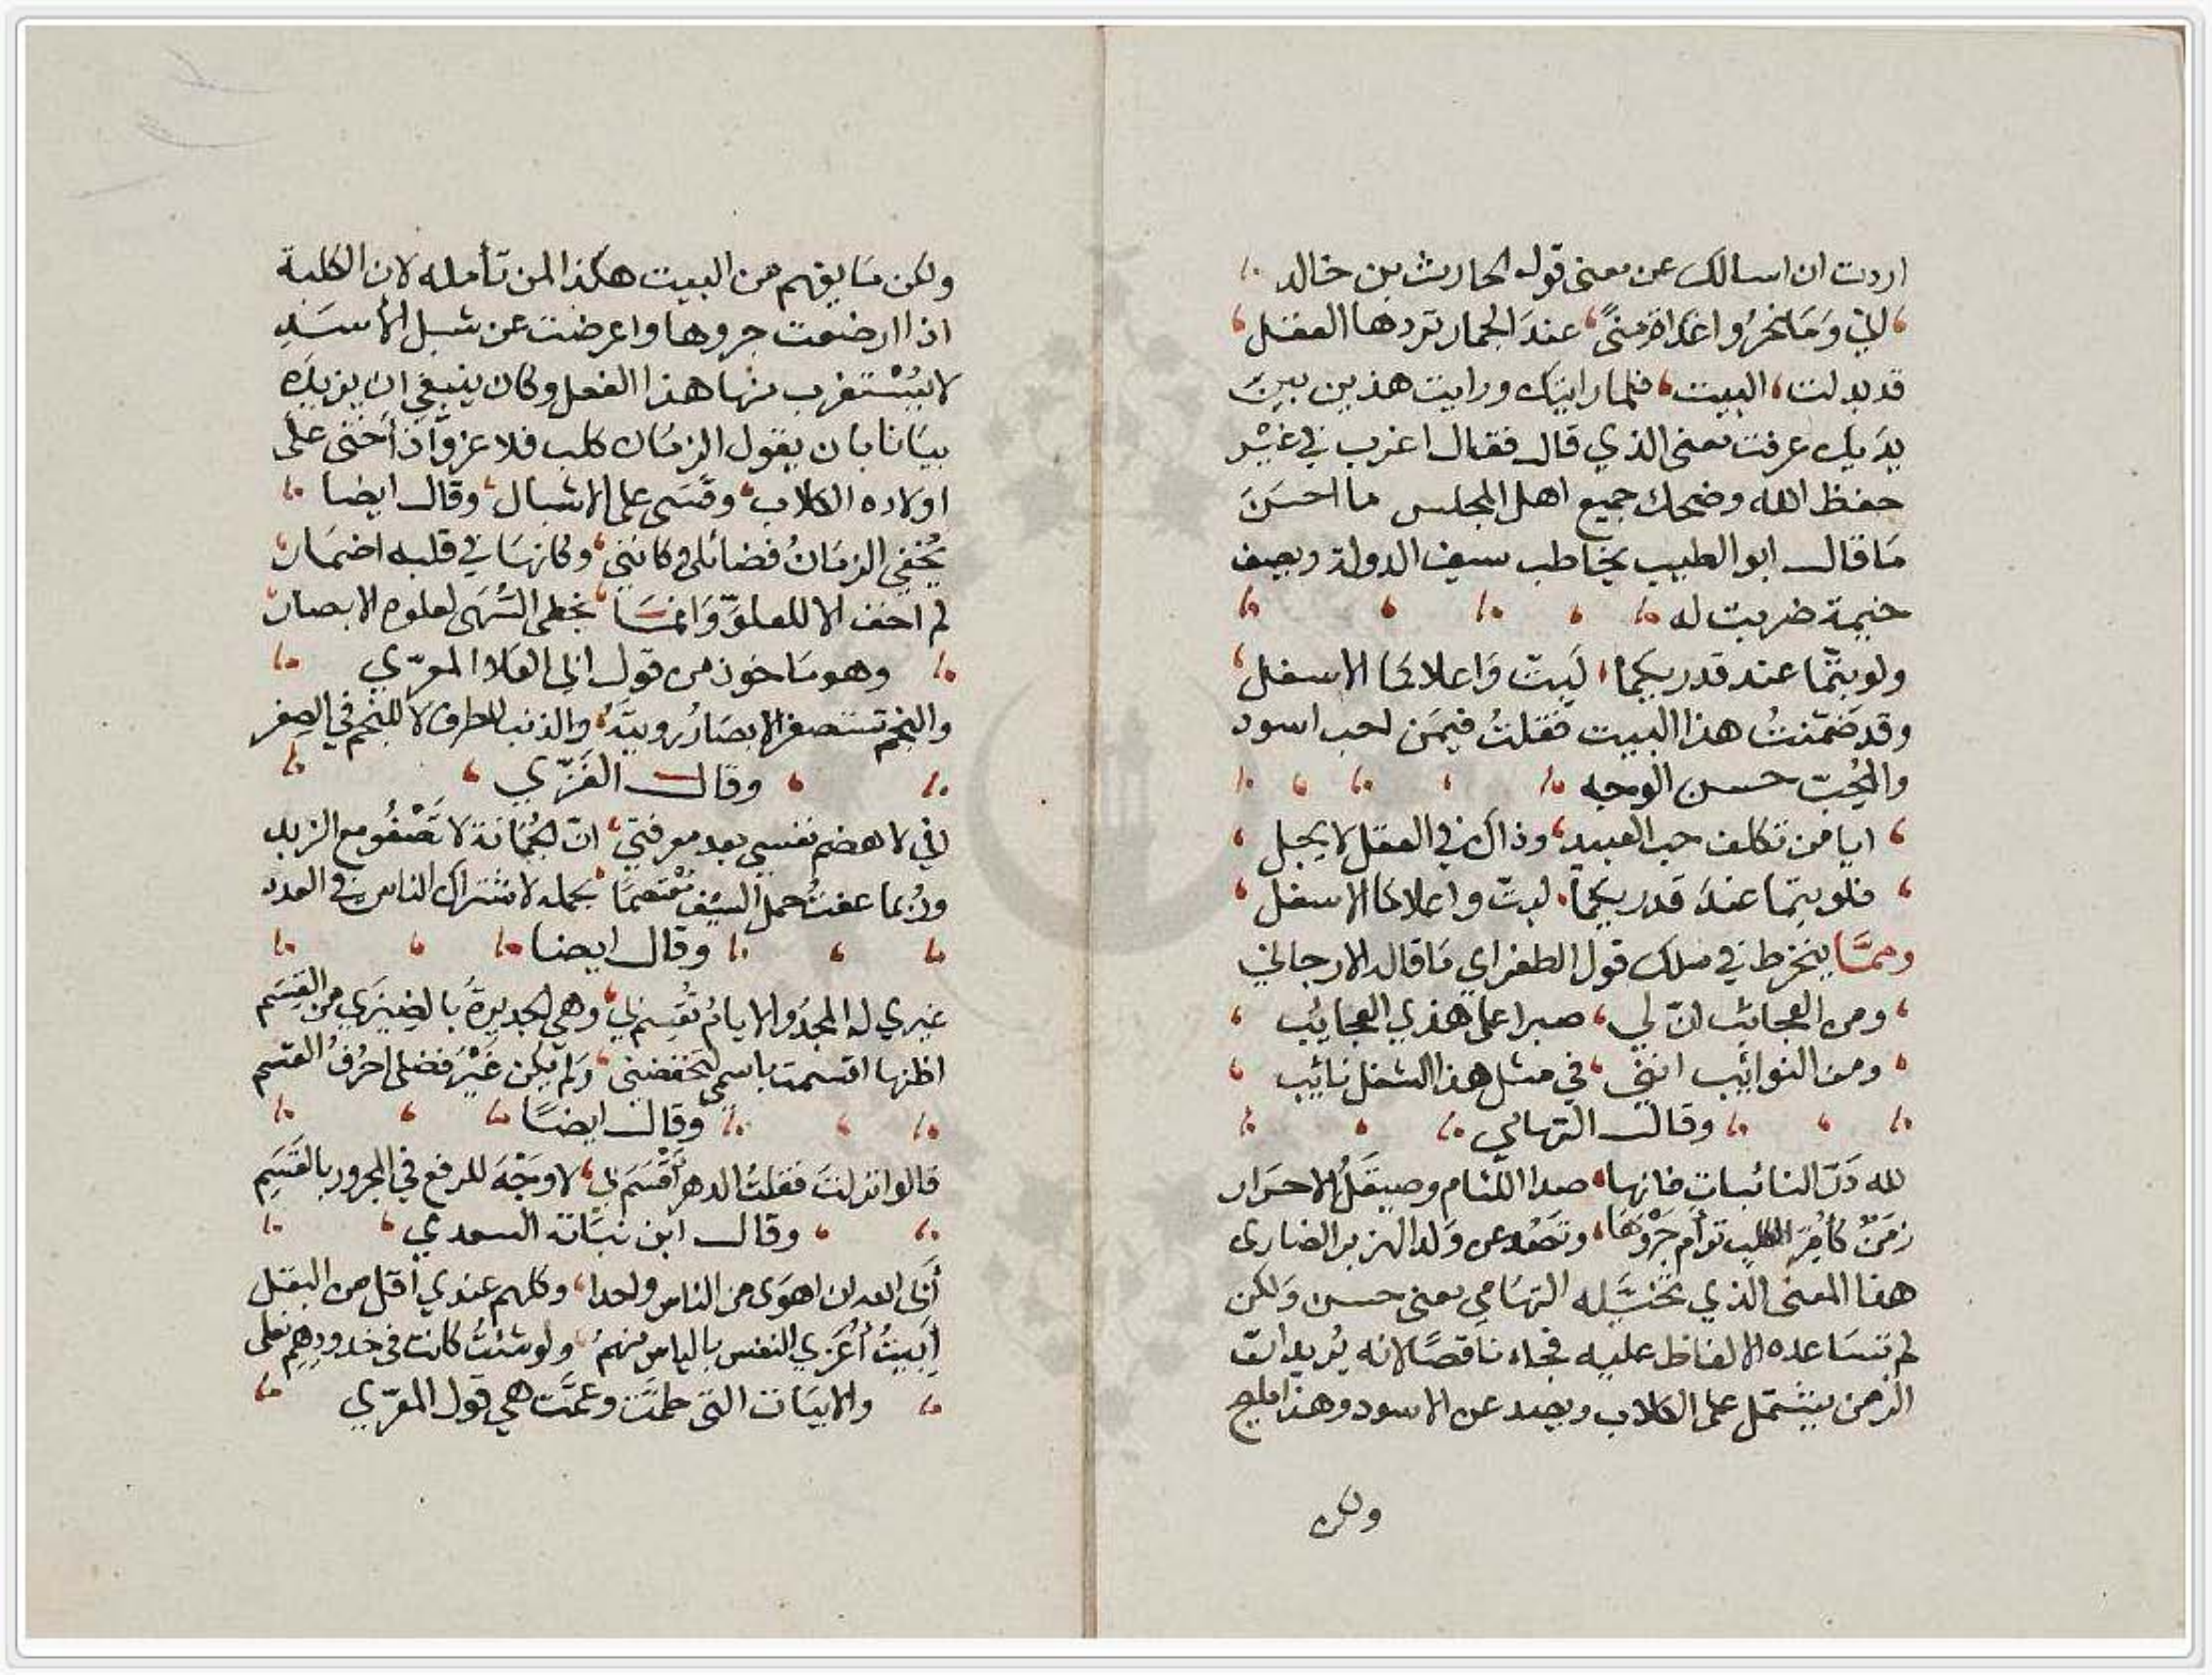 اردت ان اسالك عن معنى قول الحارث بن خالد
اني وَمَا نحرُوا غَداة مِنًى عندَ الجمار تودها العقل
قد بدلت البيت فلما رايتك ورايت هذين بين
يدَيك عرفت معنى الذي قال فقال اغرب في غيْر
حفظ الله وضحك جميع اهل المجلس ما احسَنَ
مَا قال ابو الطيب يخاطب سيف الدولة ويصف
خيمة ضربت له
ولو بتّما عند قدريكما لَبِتّ وَاعلاكما الاسفل
وقد ضَمّنتُ هذا البيت فَقلتُ فيمَن احب اسود
والمُحِبّ حسن الوجه
ايا من تكلف حب العبيد وذاك في العقل لا يجمل
فلو بتما عندَ قدريكما لبتّ واعلاكما الاسفل
وممَّا ينخرط في سلك قول الطغراي مَا قاله الارجاني
ومن العجائب انّ لي صبرا على هذي العجايب
ومن النوائب انني في مثل هذا الشغل نائب
وقال التهامي
لله دَرّ النائبات فانها صدا اللئام وصيقَلُ الاحرَار
زمَنٌ كأمِّ الكلب توأم جَرْوَهَا وتصُد عن وَلد الهزبر الضارى
هذا المعنى الذي تخيَّله التهَامي معنى حسن وَلكن
لم تسَاعده الالفاظ عليه فجاء ناقصًا لانه يُريد انّ
الزمن يشتمل على الكلاب ويصد عن الاسود وهذا مليح
ولكن
ولكن مَا يفهم من البيت هكذا لمن تأمله لان الكلبة
اذا ارضعت جروها واعرضت عن شبل الأسَدِ
لا يُسْتغرب منها هذا الفعل وكان ينبغي ان يزيدَه
بيَانا بان يقول الزمَان كلب فلا غزو اذ أخنى على
اولاده الكلاب وقسَى على الاشبال وقال ايضا
يُخفي الزمَانُ فضائلى فكانني وكانهَا في قلبه اضمَار
لم اخف الا للعلوّ وَانمَا يخطى السُّهَى لعلوه الابصار
وهو مَاخوذ من قول ابى العَلا المعرّي
والنجم تستصغر الابصَار رويتَهُ والذنب للطرف لا للنجم في الصغر
وقال الغَزّي
اني لاهضم نفسي بعد معرفتي انّ الجُمَانة لا تَصْفُو مع الزبد
ورُبما عفتُ حمل السيف مُعْتصمًا بحمله لاشتراك الناس في العدد
وقال ايضا
غيري له المجدُ والايامُ تقسِم لي وهي الجديرةُ بالضيزَي من القِسَم
اظنها اقسمت باسمي لتخفضني ولم يكن غيْرَ فضلى احرُفُ القسم
وقال ايضًا
قالوا نزلتَ فقلتُ الدهر أَقْسَمَ بي لا وَجْهَ للرفع في المجرور بالقَسَمِ
وقال ابن نبَاته السعدي
أبَى الله ان اهوَى من الناس واحدا وكلهم عندي أقل من البقل
أَبِيتُ أُعزي النفس بالياس منهمُ ولو شئتُ كانت في خدودهم نعلى
والابيَات التى طمّت وعمَّت هي قول المعَرّي